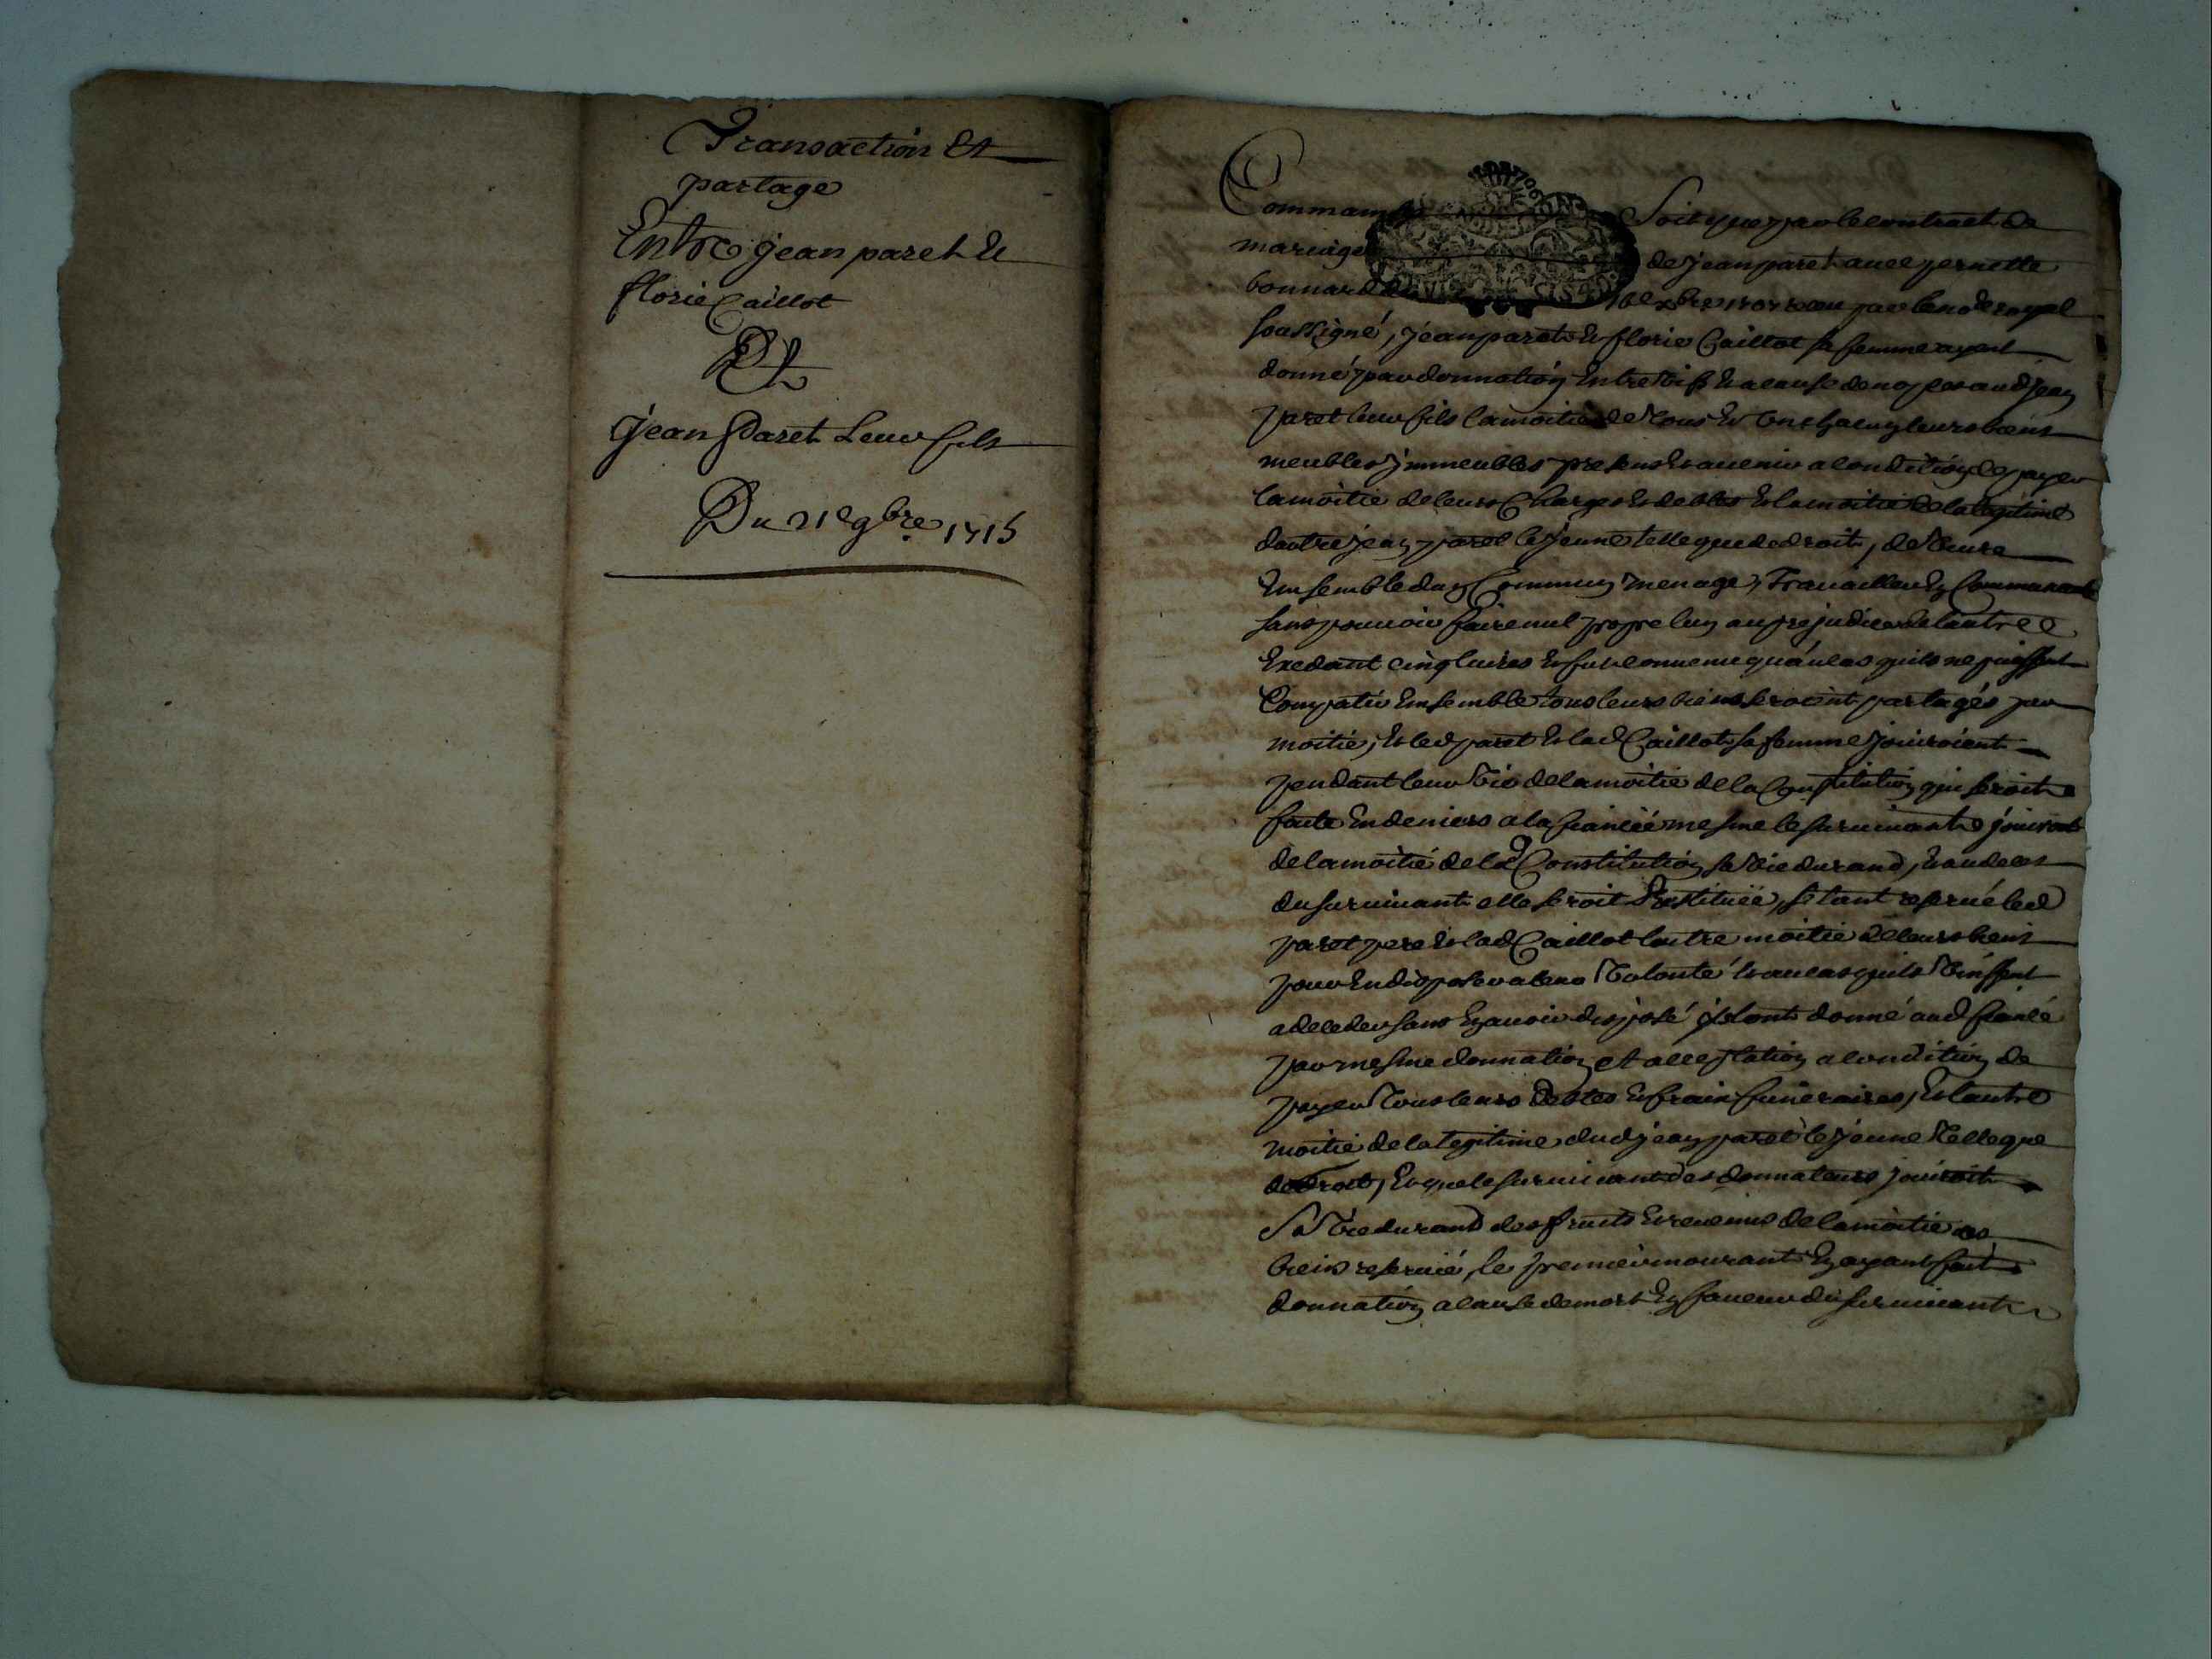 Transaction Et
partage
Entre jean paret Et
florie Caillot
Et
Jean Paret Leur fils
Du 21e 9bre 1715
Comme ainsy Soit que par le contract de
mariage de jean paret avec pernette
bonnard du 10e xbre receu par le no.re royal
soussigné, jean paret Et florie Caillot sa femme ayent
donné par donnation Entre vifs Et a cause de nopces aud jean
paret leur fils la moitié de tous Et uns chacung leurs biens
meubles jmmeubles presens Et auenir a condition de payer
la moitie de leurs Charges Et debtes Et la moitie de la legitime
dautre jean paret le jeune telle que de droit, de viure
Ensemble dung Commung menage, Trauailler Eg Communauté
sans pouuoir faire nul propre lung au prejudice de lautre
Exedant cinq liures Et fut conuenu quau cas quils ne puissent
Compatir Ensemble tous leurs biens seroient partagés par
moitié, Et led paret Et lad Caillot sa femme jouiroient
pendant leur vie de la moitie de la Constitution qui seroit
faite En deniers a la fiancéé mesme le suruiuant jouiroit
de la moitié de lad Constitution sa vie durand, Et au deces
du suruiuant elle seroit Restituéé, setant reserué led
paret pere Et lad Caillot lautre moitié de leurs biens
pour En disposer a leur volonté Et au cas quils vinssent
a deceder sans Eg auoir disposé jls lont donné aud fiancé
par mesme donnation et acceptation a condition de
payer tous leurs debtes Et fraix funeraires, Et lautre
moitié de la legitime dud jean paret le jeune telle que
de droit, Et que le suruiuant des donnateurs jouiroit
sa vie durand des fruits Et reuenus de la moitié des
biens reserué, le premier mourant Eg ayant fait
donnation a cause de mort Eg faueur du suruiuant